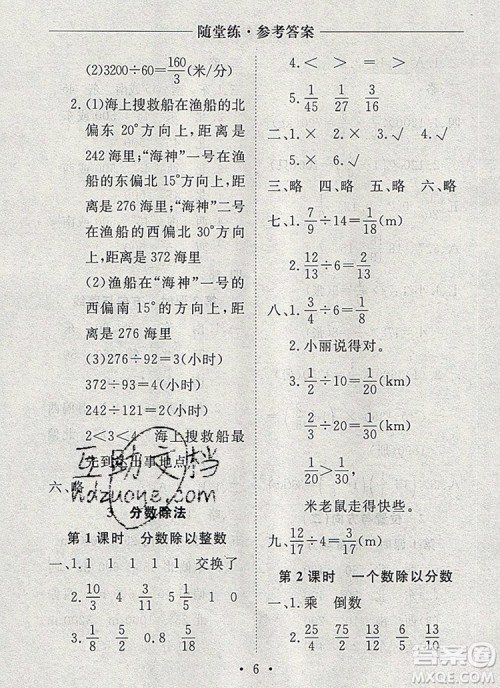 随堂练·参考答案
(2)3200÷60=160/3(米/分)
2.(1)海上搜救船在渔船的北
偏东20°方向上,距离是
242海里;“海神”一号在渔
船的东偏北15°方向上,距
离是276海里;“海神”二号
在渔船的西偏北30°方向
上,距离是372海里
(2)渔船在“海神”一号的
西偏南15°方向上,距离是
276海里
(3)276÷92=3(小时)
372÷93=4(小时)
242÷121=2(小时)
2<3<4 海上搜救船最
先到达出事地点
六、略
3 分数除法
第1课时 分数除以整数
一、1.1 1 1 1 交换了
2.10/3 4/9 1/2 1 0
3.1/8 5/2 0.8 5/18
4.< > = >
5.1/45 1/27 3/10 2/15
二、1.× 2.√ 3.√
4.× 5.√
三、略 四、略 五、略 六、略
七、1.7/9÷14=1/18(m)
2.1/2÷6=1/12(m)
八、1.1/3÷10=1/30(km)
1/4÷6=1/24(km)
小丽说得对。
2.1/3÷10=1/30(km)
1/2÷15=1/30(km)
1/15>1/30,
米老鼠走得快些。
九、12/17÷4=3/17(m)
第2课时 一个数除以分数
一、1.乘 倒数
2.25/22 4/77 6/25 13/10
互助文档
hdzuone.com
作业帮
MXQE.COM
·6·